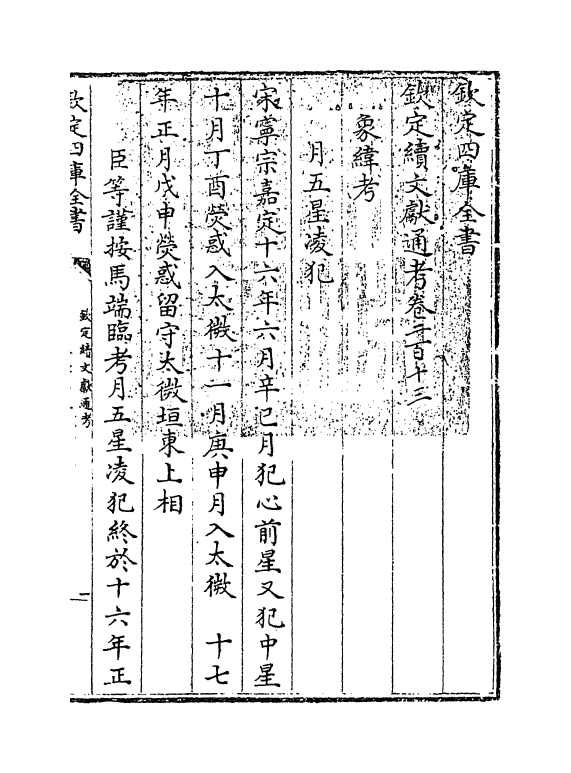 欽定四庫全書
欽定續文獻通考卷二百十三
象緯考
月五星凌犯
宋寧宗嘉定十六年六月辛巳月犯心前星又犯中星
十月丁酉熒惑入太微十一月庚申月入太微　十七
年正月戊申熒惑留守太微垣東上相
臣等謹按馬端臨考月五星凌犯終於十六年正
欽定四庫全書
欽定續文獻通考
一